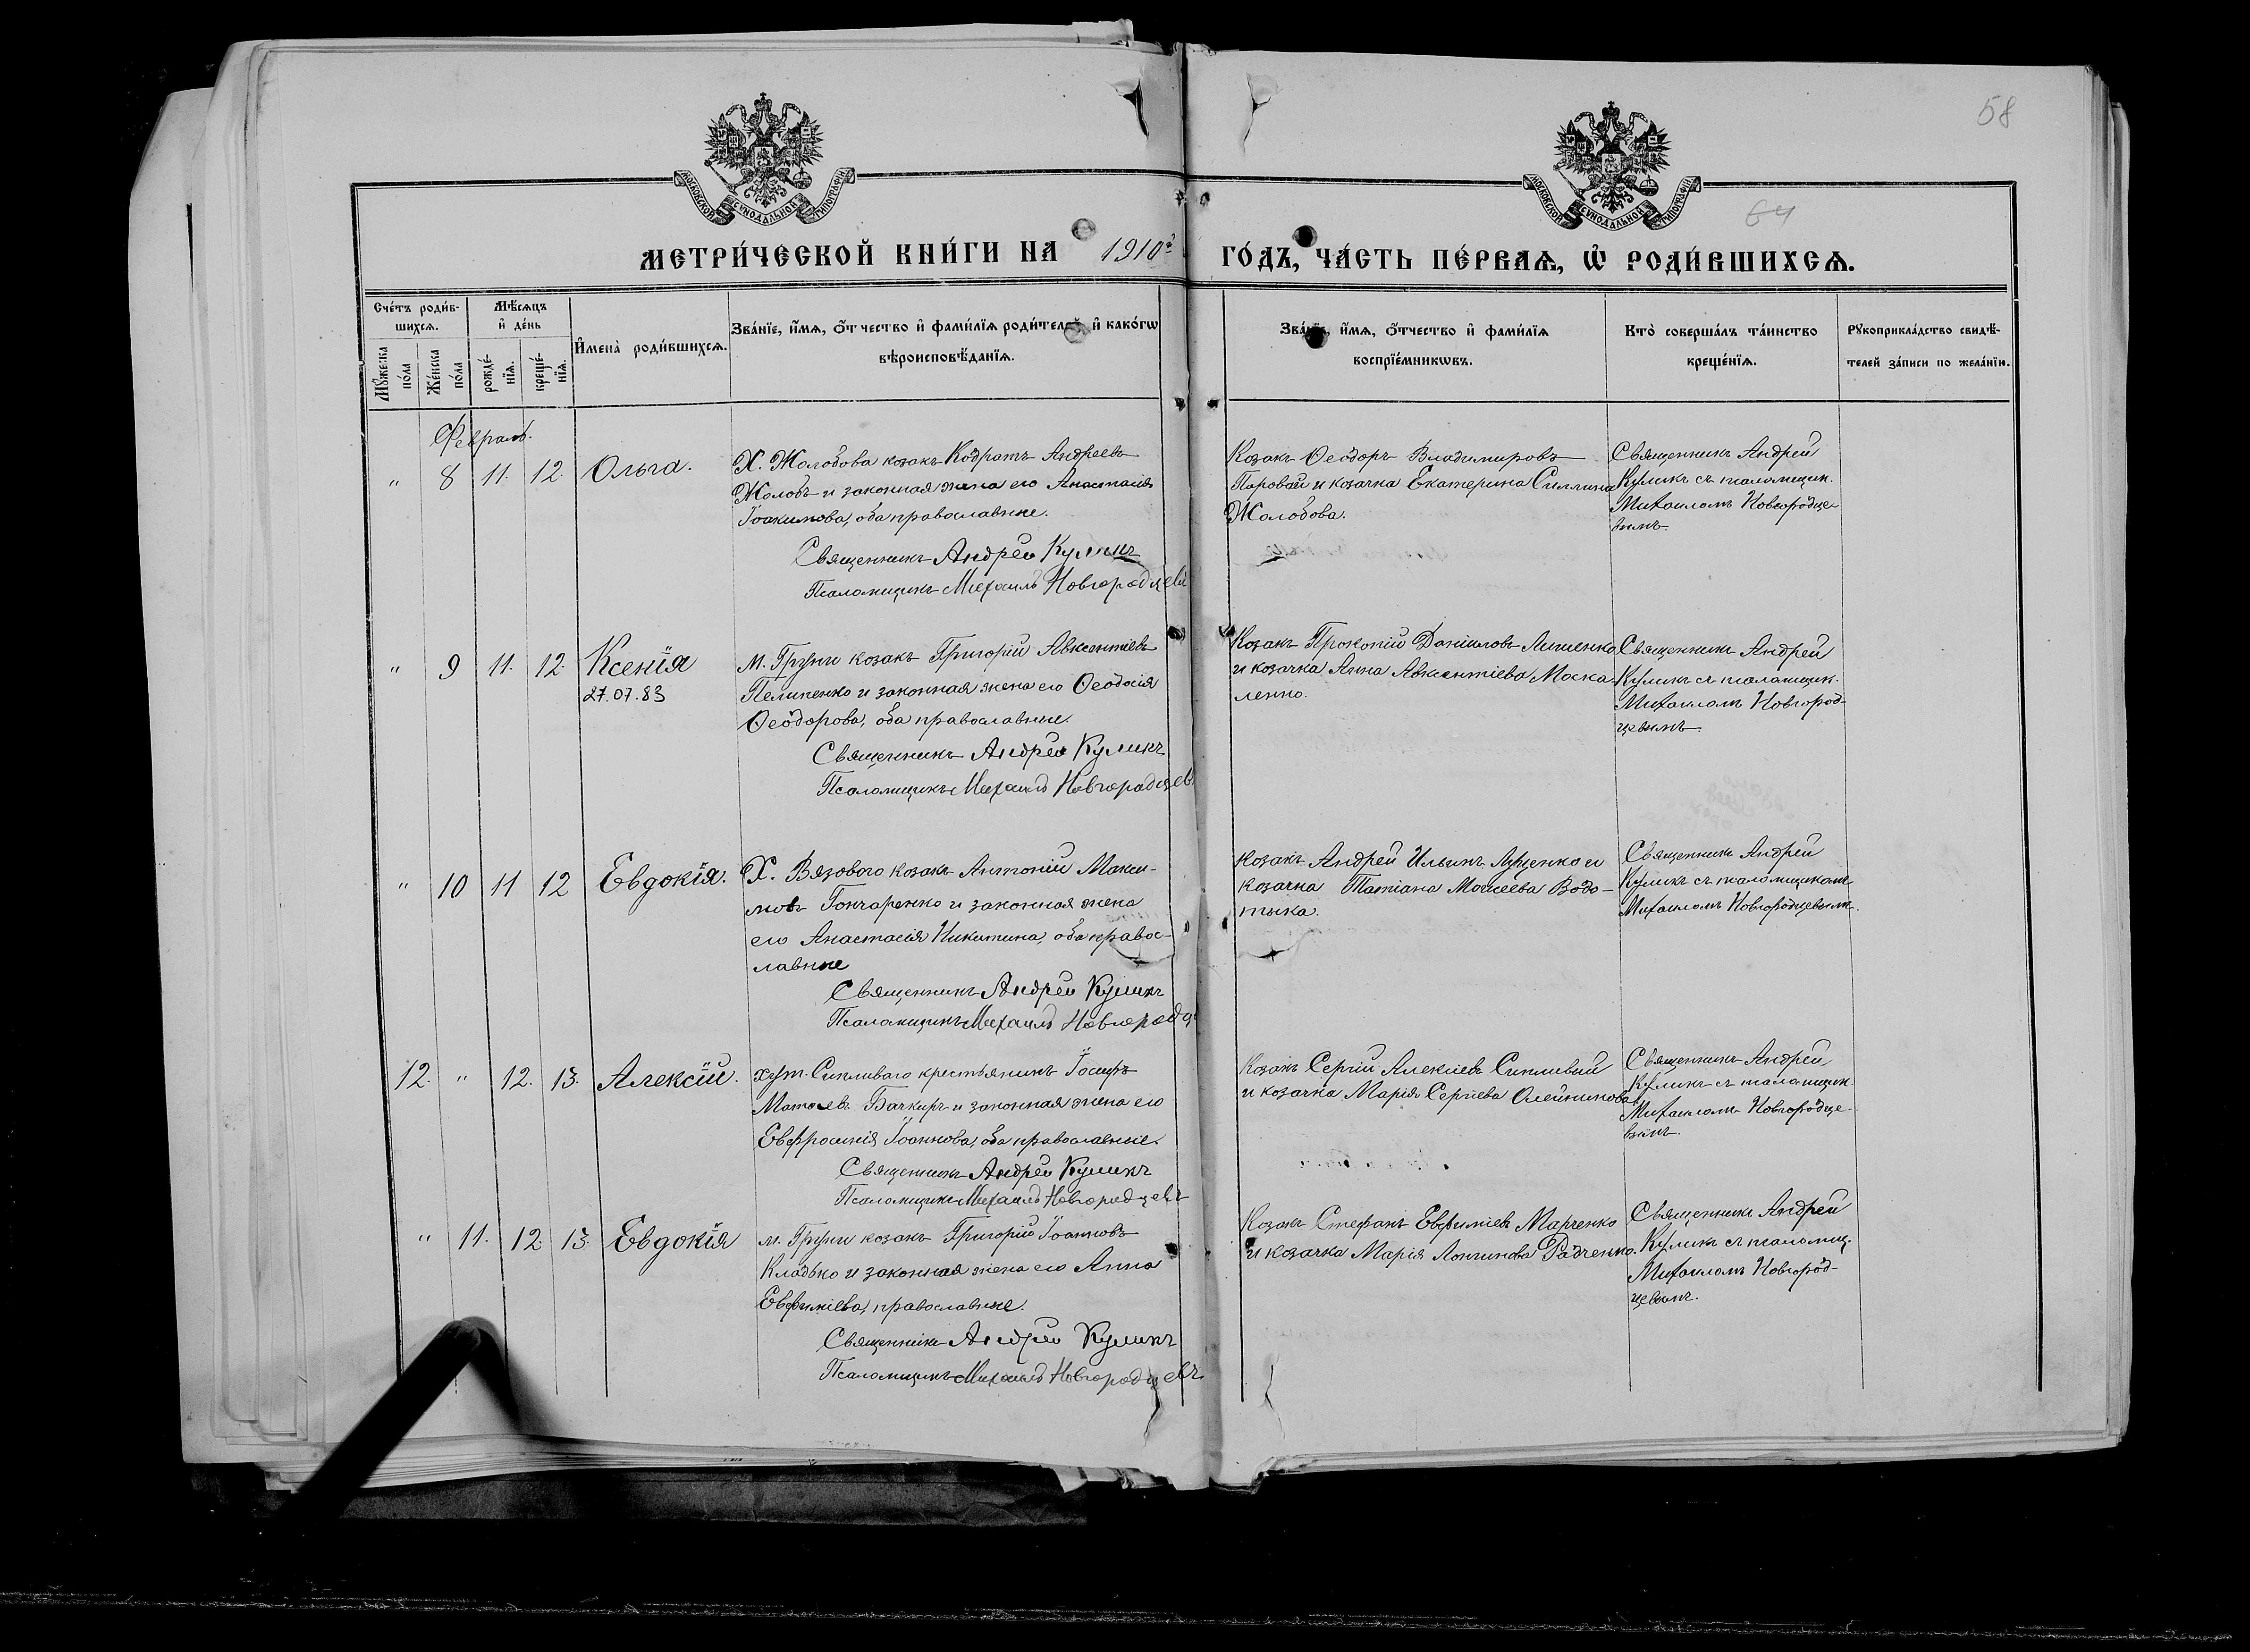 58
МОСКОВСКОЙ СѴНОДАЛЬНОЙ ТИПОГРАФІИ
МОСКОВСКОЙ СѴНОДАЛЬНОЙ ТИПОГРАФІИ
64
МЕТРИ́ЧЕСКОЙ КНИ́ГИ НА 1910й ГО́ДЪ, ЧА́СТЬ ПЕ́РВАѦ, Ѡ҆ РОДИ́ВШИХСѦ.
Сче́тъ роди́в-
шихсѧ.
Мꙋ́жеска
по́ла
Же́нска
по́ла
Мѣ́сѧцъ
и҆ де́нь
рожде́-
нїѧ.
креще́-
нїѧ.
И҆мена̀ роди́вшихсѧ.
Зва́нїе, и҆́мѧ, ѻ҆́тчество и҆ фами́лїѧ роди́телей, и҆ како́гѡ
вѣроисповѣ́данїѧ.
Зва́нїе, и҆́мѧ, ѻ҆́тчество и҆ фами́лїѧ
воспрїе́мникѡвъ.
Кто̀ соверша́лъ та́инство
креще́нїѧ.
Рꙋкоприкла́дство свидѣ́-
телей за́писи по жела́нїю.
Февраль.
" 8 11. 12. Ольга.
Х. Жолобова козакъ Кодратъ Андреевъ
Жолобъ и законная жена его Анастасія
Іоакимова, оба православные.
Священникъ Андрей Куликъ
Псаломщикъ Михаилъ Новгородцевъ
Козакъ Ѳеодоръ Владимировъ
Паровай и козачка Екатерина
Жолобова.
Священникъ Андрей
Куликъ съ псаломщик.
Михаиломъ Новгородце-
вымъ
" 9 11. 12. Ксенія
27.07.83
м. Груни козакъ Григорій Авксентіевъ
Пелипенко и законная жена его Ѳеодосія
Ѳеодорова, оба православные.
Священникъ Андрей Куликъ
Псаломщикъ Михаилъ Новгородцев
Козакъ Прокопій Даніиловъ
и козачка Анна Авксентіева Моска-
ленко.
Священникъ Андрей
Куликъ съ псаломщик.
Михаиломъ Новгород-
цевымъ
" 10 11 12 Евдокія.
Х. Вязового козакъ Антоній Макси-
мовъ Гончаренко и законная жена
его Анастасія Никитина, оба правос-
лавные
Священникъ Андрей Куликъ
Псаломщикъ Михаилъ Новгородц
Козакъ Андрей Ильинъ Луценко и
козачка Татіана Моисеева Водо-
тыка.
Священникъ Андрей
Куликъ съ псаломщикомъ
Михаиломъ Новгородцевымъ.
12. " 12. 13. Алексій.
хут. Сипливаго крестьянинъ Іосифъ
Матѳіевъ и законная жена его
Евфросинія Іоаннова, оба православные.
Священникъ Андрей Куликъ
Псаломщикъ Михаилъ Новгородцевъ
Козакъ Сергій Алексіевъ Сипливый
и козачка Марія Сергіева Олейникова
Священникъ Андрей
Куликъ съ псаломщик.
Михаиломъ Новгородце-
вымъ.
" 11. 12 13. Евдокія
м. Груни козакъ Григорій Іоанновъ
Кладько и законная жена его Анна
Евфиміева, православные.
Священникъ Андрей Куликъ
Псаломщикъ Михаилъ Новгородцевъ
Козакъ Стефанъ Евфиміевъ Марченко
и козачка Марія Лонгинова Радченко.
Священникъ Андрей
Куликъ съ псаломщ.
Михаиломъ Новгород-
цевымъ.